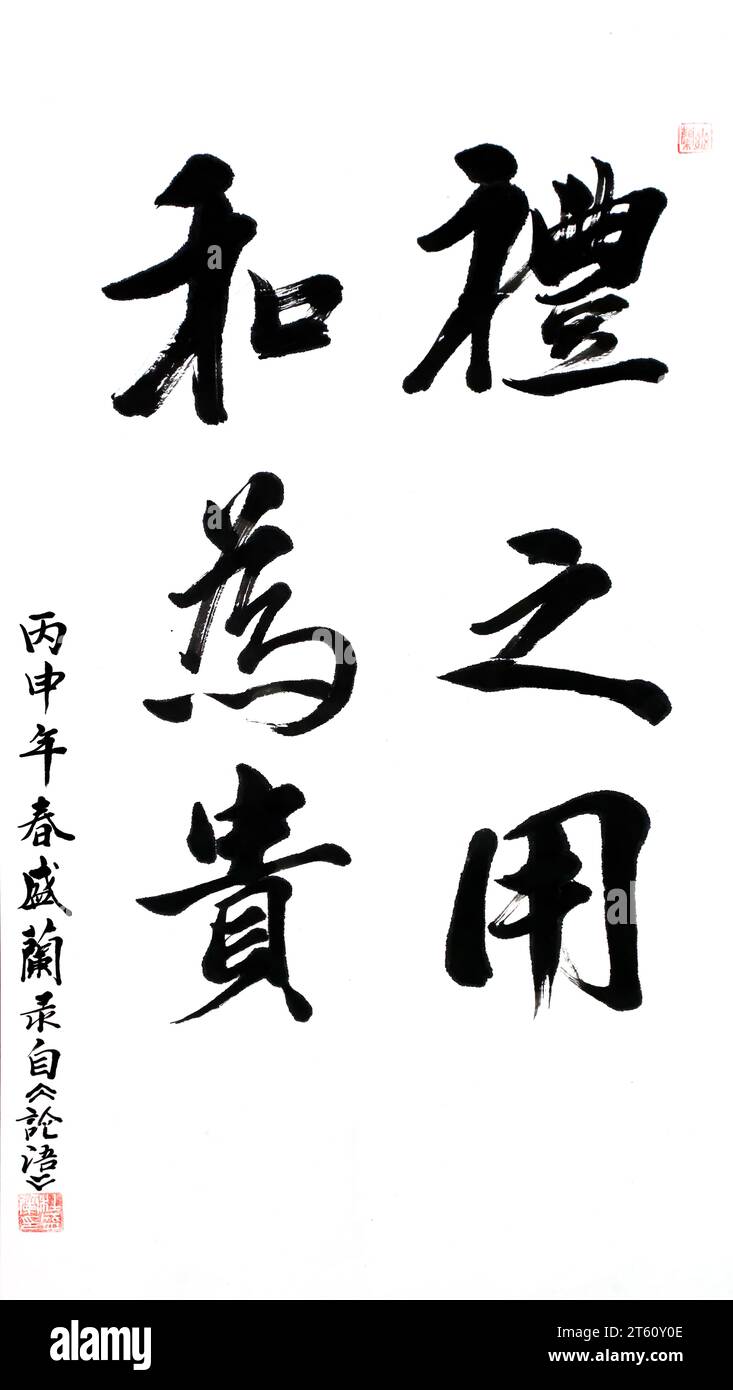 禮之用
和為貴
丙申年春盛蘭录自《論语》
alamy
Image ID: 2T60Y0E
www.alamy.com